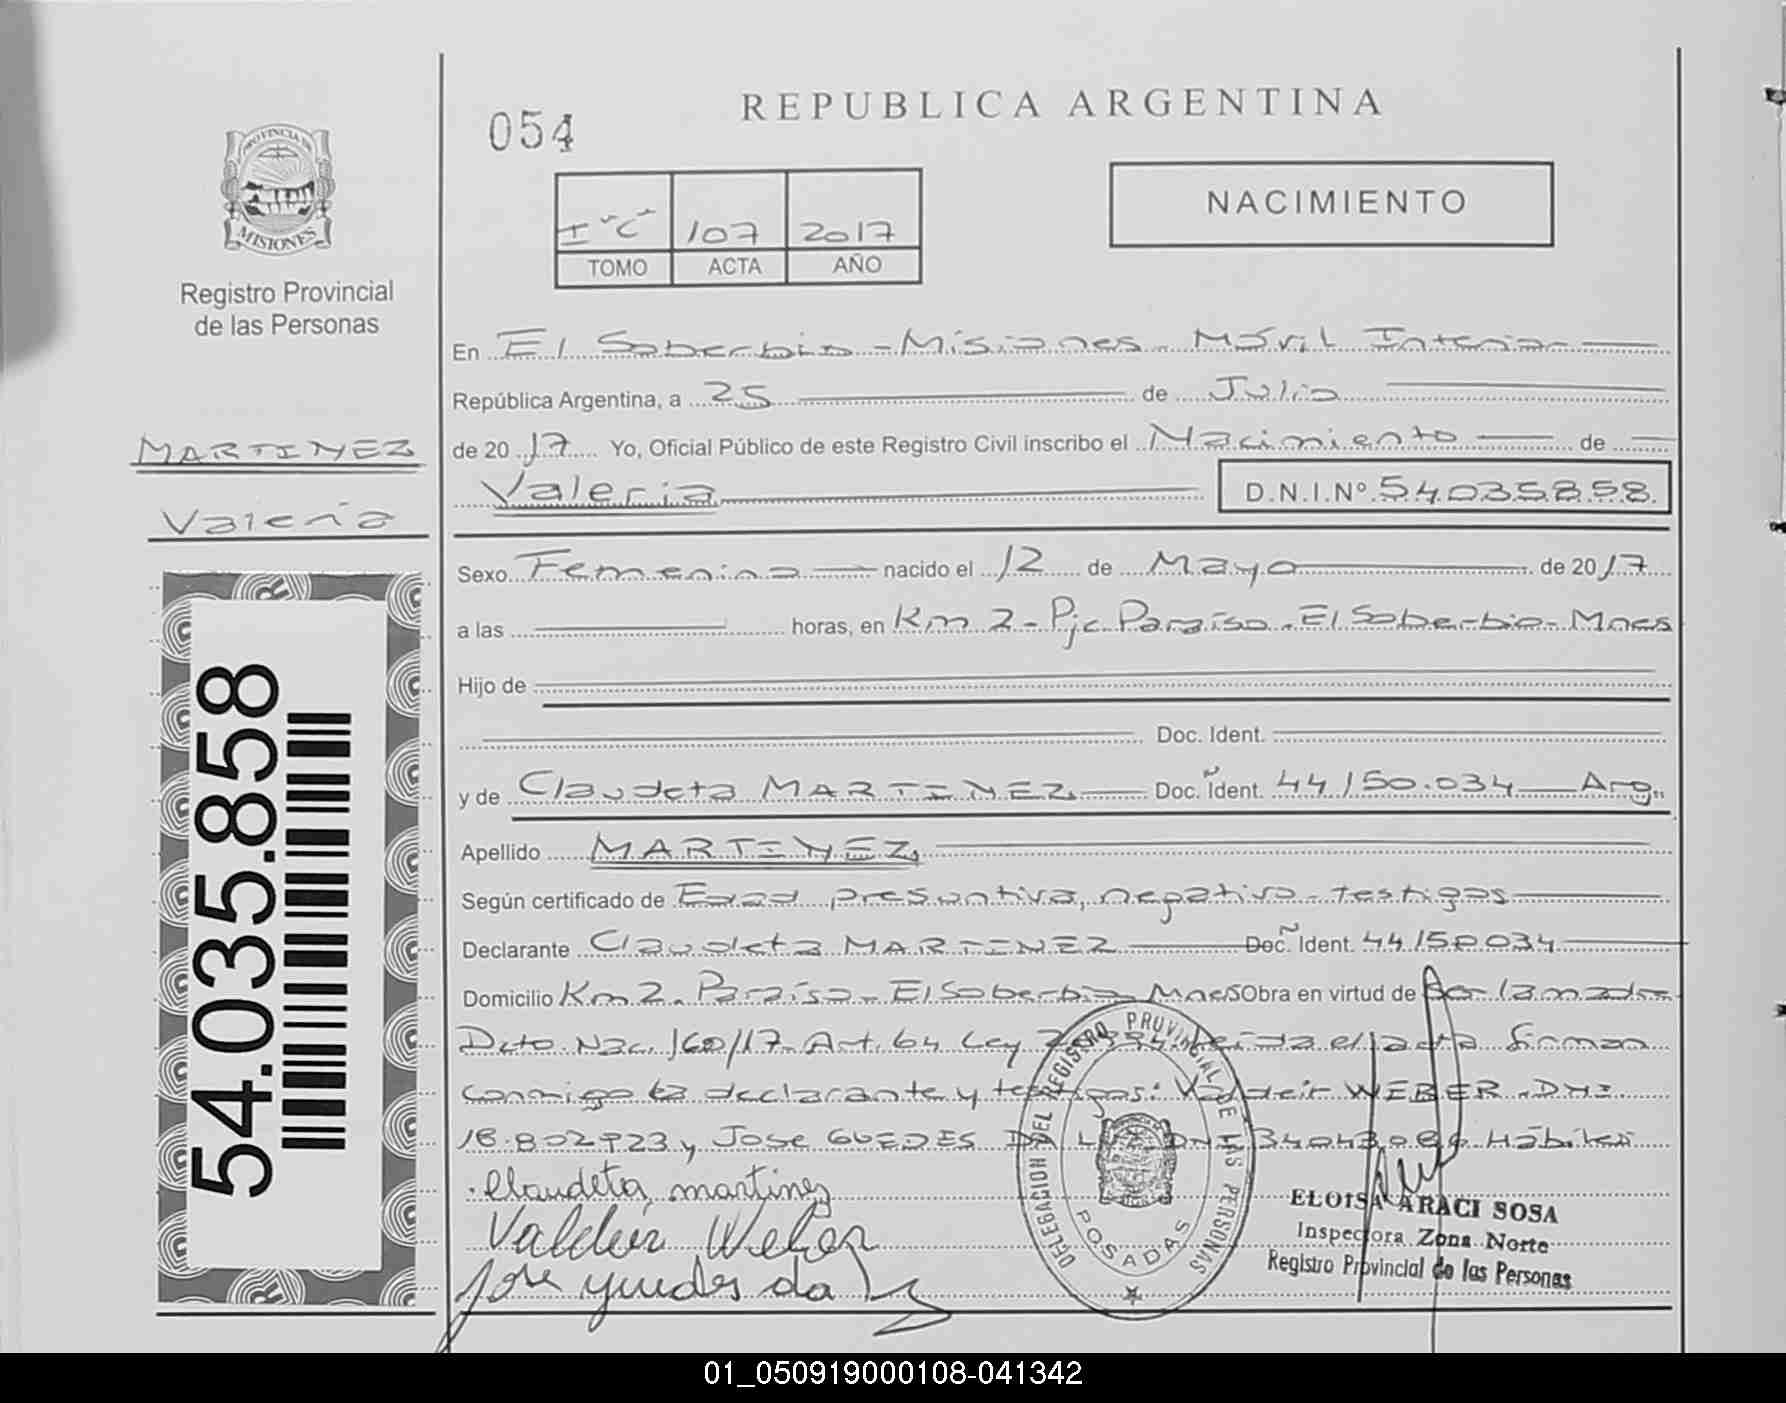 REPUBLICA ARGENTINA
054
NACIMIENTO
PROVINCIA DE
MISIONES
Registro Provincial
de las Personas
107 2017
TOMO ACTA AÑO
En El Soberbio - Misiones - Móvil Interior
República Argentina, a 25 de Julio
de 2017 Yo, Oficial Público de este Registro Civil inscribo el Nacimiento de
MARTINEZ
Valeria
Valeria D.N.I.Nº 54035858
Sexo Femenino nacido el 12 de Mayo de 2017
a las horas, en Km 2 - Pje Paraíso - El Soberbio - Mnes
Hijo de
Doc. Ident.
y de Claudeta MARTINEZ Doc. Ident. 44150.034 Arg.
Apellido MARTINEZ
Según certificado de Edad presuntiva, negativa - testigos
Declarante Claudeta MARTINEZ Doc. Ident. 44150034
Domicilio Km 2. Paraíso - El Soberbio Mnes Obra en virtud de Ser la madre
Dcto. Nac. 160/17 - Art. 64 Ley Leída el acta firman
conmigo la declarante y testigos: Valdeir WEBER - DNI
18.802.723 y Jose GUEDES DNI Hábiles
Claudeta martinez
Valdeir Weber
Jose guedes da
54.035.858
DELEGACION DEL REGISTRO PROVINCIAL DE LAS PERSONAS
POSADAS
ELOISA ARACI SOSA
Inspectora Zona Norte
Registro Provincial de las Personas
01_050919000108-041342